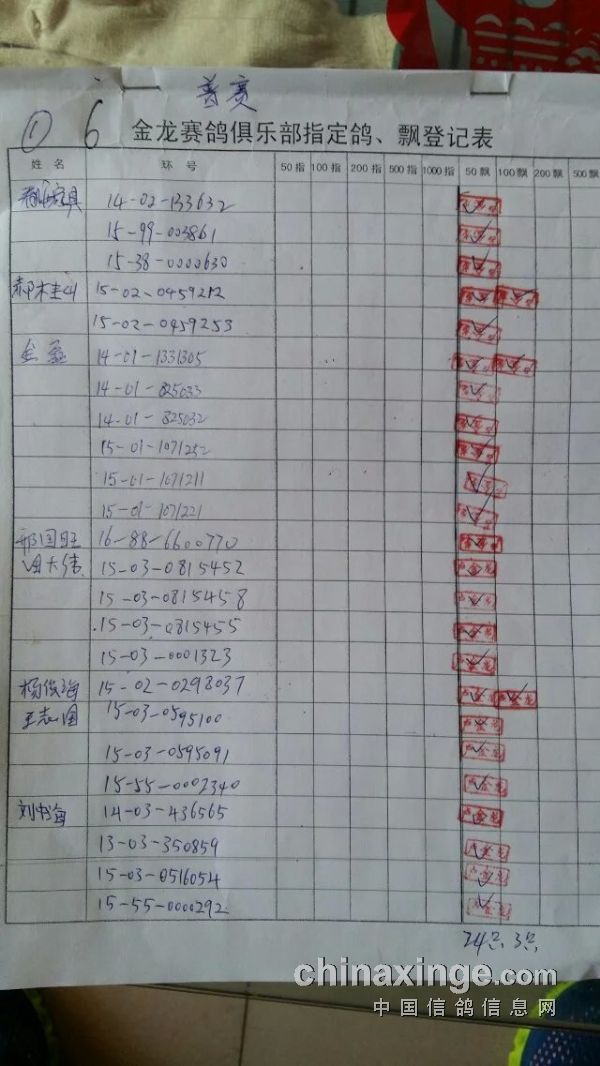 普赛
① 6
金龙赛鸽俱乐部指定鸽、飘登记表
姓名 环号 50指 100指 200指 500指 1000指 50飘 100飘 200飘 500飘
14-02-133632
15-99-003861
15-38-0000630
15-02-0459212
15-02-0459253
14-01-1331305
14-01-825033
14-01-825032
15-01-1071252
15-01-1071211
15-01-1071221
邢国旺 16-88-6600770
田大伟 15-03-0815452
15-03-0815458
15-03-0815455
15-03-0001323
杨俊海 15-02-0298037
王志国 15-03-0595100
15-03-0595091
15-55-0002340
刘书海 14-03-436565
13-03-350859
15-03-0516054
15-55-0000292
24只 3只
chinaxinge.com
中国信鸽信息网